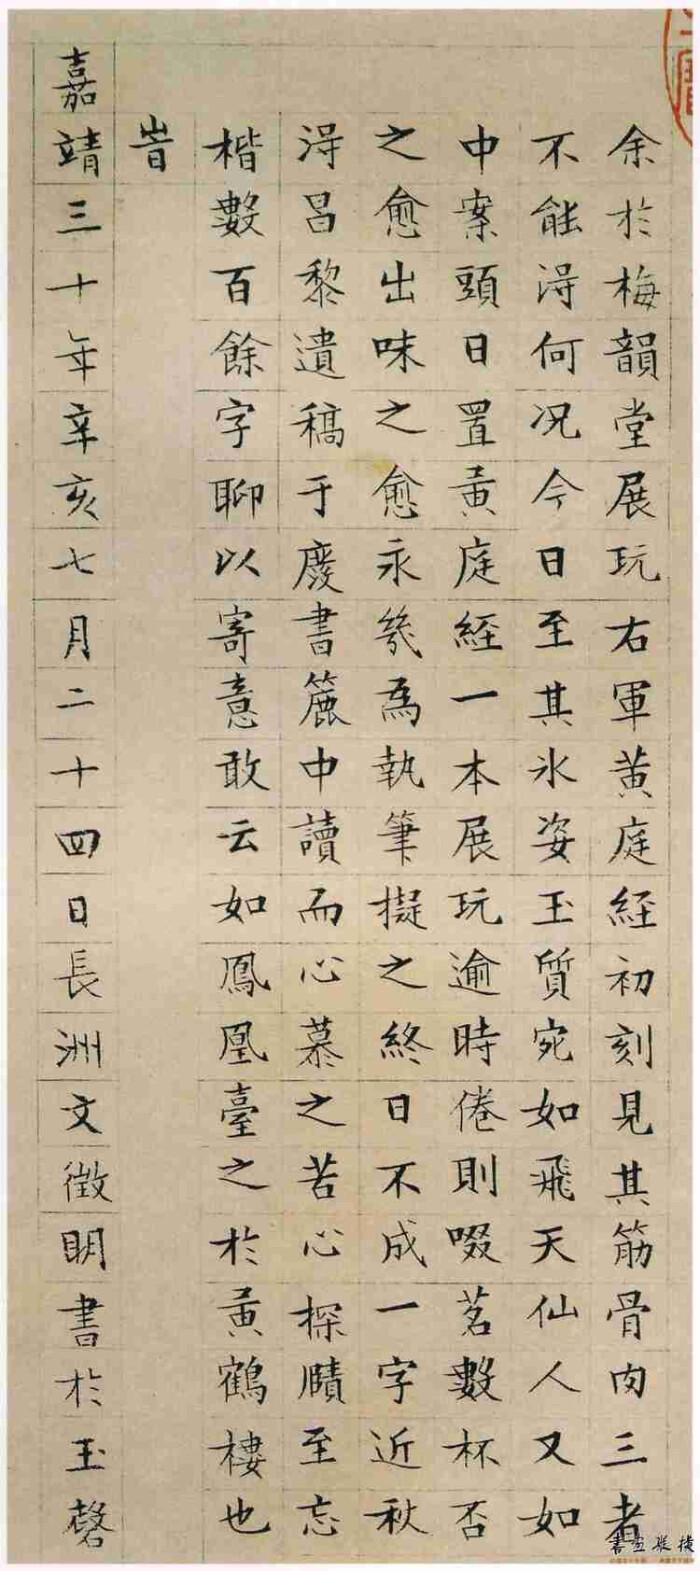 余於梅韻堂展玩右軍黄庭経初刻見其筋骨肉三者
不能淂何况今日至其氷姿玉質宛如飛天仙人又如
中案頭日置黄庭經一本展玩逾時倦則啜茗數杯否
之愈出味之愈永幾為執筆擬之終日不成一字近秋
淂昌黎遺稿于廢書簏中讀而心慕之苦心探賾至忘
楷數百餘字聊以寄意敢云如鳳凰臺之於黄鶴樓也
峕
嘉靖三十年辛亥七月二十四日長洲文徵明書於玉磬